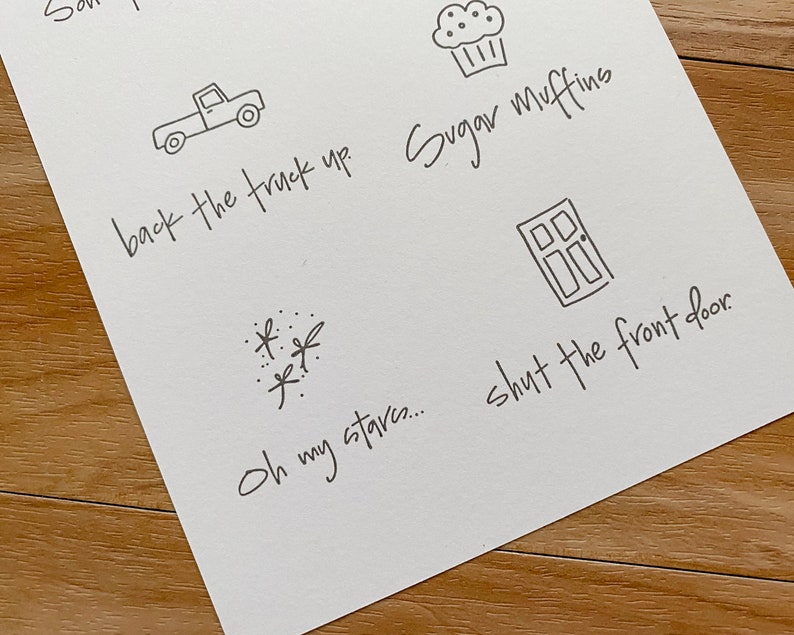 Sugar Muffins
back the truck up.
shut the front door.
Oh my stars...